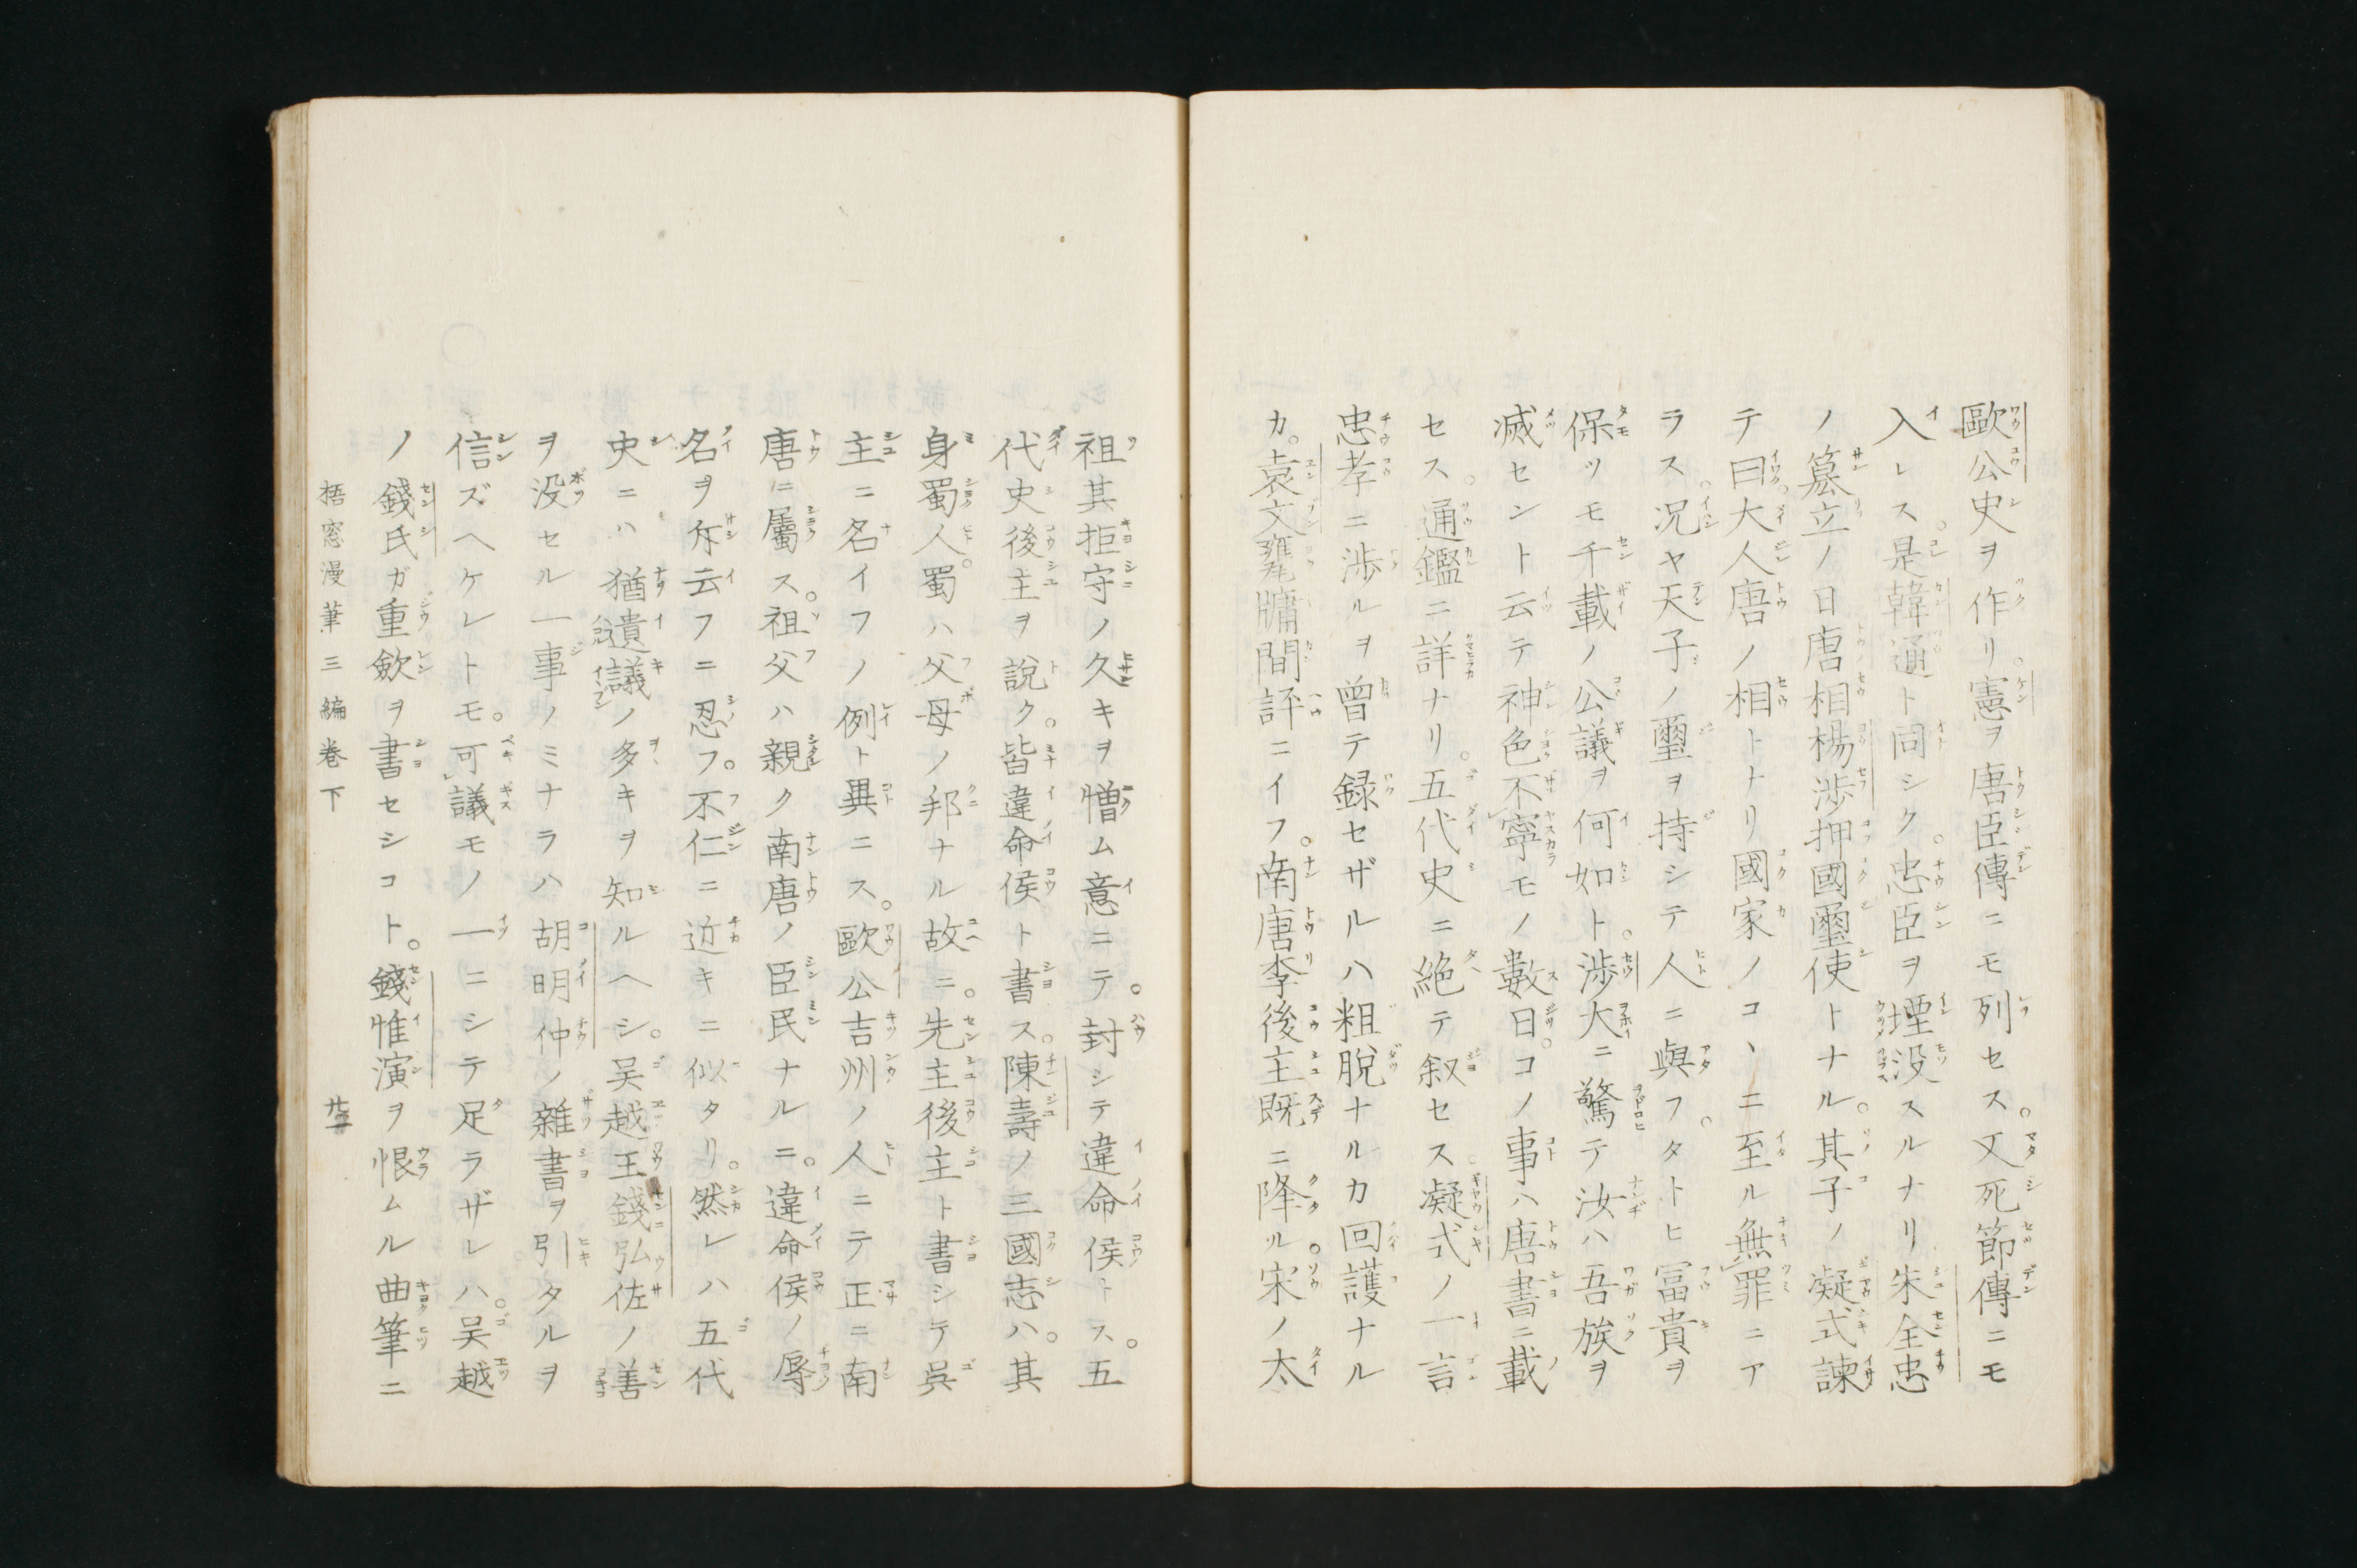 歐公史ヲ作リ。憲ヲ唐臣傳ニモ列セス。又死節傳ニモ
入レス。是韓通ト同シク。忠臣ヲ堙没スルナリ朱全忠
ノ簒立ノ日唐相楊渉押國璽使トナル。其子ノ凝式諫
テ曰。大人唐ノ相トナリ國家ノコヽニ至ル無罪ニア
ラス。況ヤ天子ノ璽ヲ持シテ人ニ與フ。タトヒ冨貴ヲ
保ツモ千載ノ公議ヲ何如ト。渉大ニ驚テ汝ハ吾族ヲ
滅セント云テ神色不寧モノ數日。コノ事ハ唐書ニ載
セス。通鑑ニ詳ナリ。五代史ニ絶テ叙セス。凝式ノ一言
忠孝ニ渉ルヲ曾テ録セザルハ粗脱ナルカ回護ナル
カ。袁文甕牖間評ニイフ。南唐李後主既ニ降ル。宋ノ太
祖其拒守ノ久キヲ憎ム意ニテ。封シテ違命侯トス。五
代史後主ヲ說ク。皆違命侯ト書ス。陳壽ノ三國志ハ。其
身蜀人。蜀ハ父母ノ邦ナル故ニ。先主後主ト書シテ吳
主ニ名イフノ例ト異ニス。歐公吉州ノ人ニテ正ニ南
唐ニ屬ス。祖父ハ親ク南唐ノ臣民ナルニ。違命侯ノ辱
名ヲ斥云フニ忍フ。不仁ニ近キニ似タリ。然レハ五代
史ニハ猶遺議ノ多キヲ知ルヘシ。吴越王錢弘佐ノ善
ヲ没セル一事ノミナラハ胡明仲ノ雜書ヲ引タルヲ
信ズヘケレトモ。可議モノ一ニシテ足ラザレハ。吴越
ノ錢氏ガ重斂ヲ書セシコト。錢惟演ヲ恨ムル曲筆ニ
梧窓漫筆三編巻下